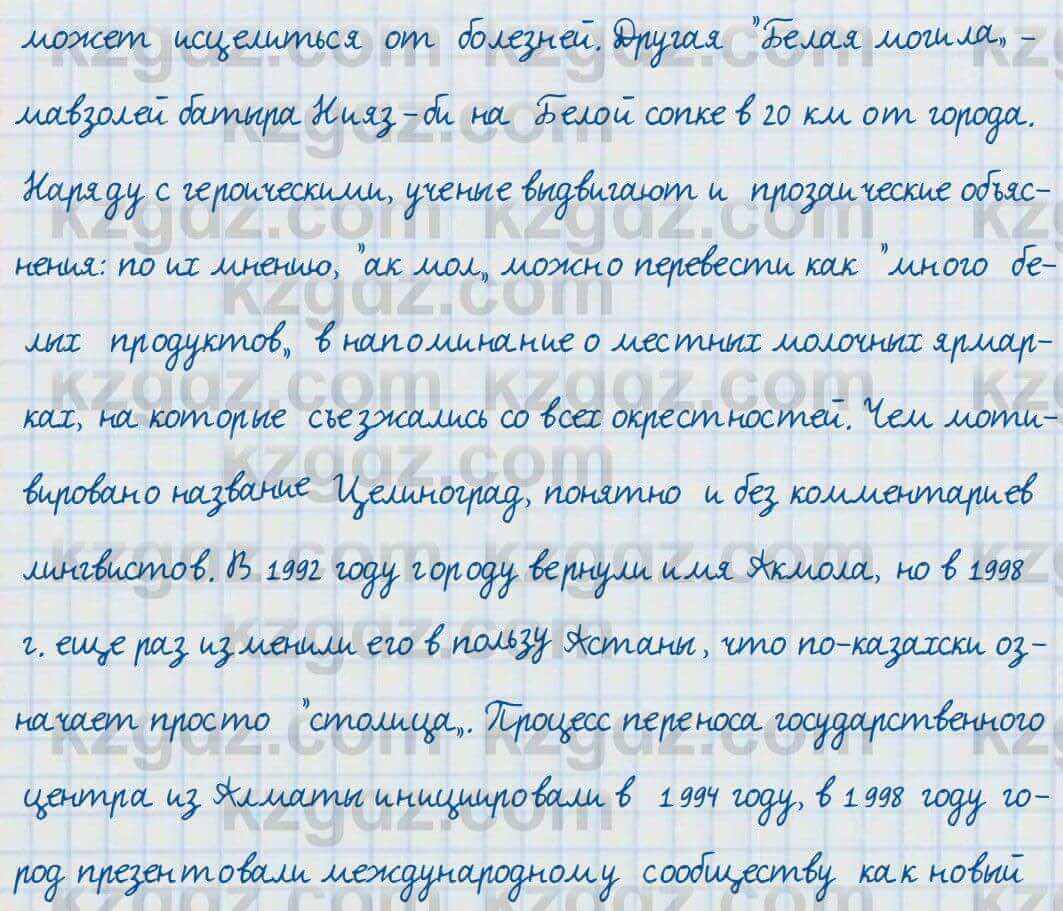 может исцелиться от болезней. Другая "Белая могила„ -
мавзолей батыра Нияз-би на Белой сопке в 20 км от города.
Наряду с героическими, ученые выдвигают и прозаические объяс-
нения: по их мнению, "ак мол„ можно перевести как "много бе-
лых продуктов„ в напоминание о местных молочных ярмар-
ках, на которые съезжались со всех окрестностей. Чем моти-
вировано название Целиноград, понятно и без комментариев
лингвистов. В 1992 году городу вернули имя Акмола, но в 1998
г. еще раз изменили его в пользу Астаны, что по-казахски оз-
начает просто "столица„. Процесс переноса государственного
центра из Алматы инициировали в 1994 году, в 1998 году го-
род презентовали международному сообществу как новый